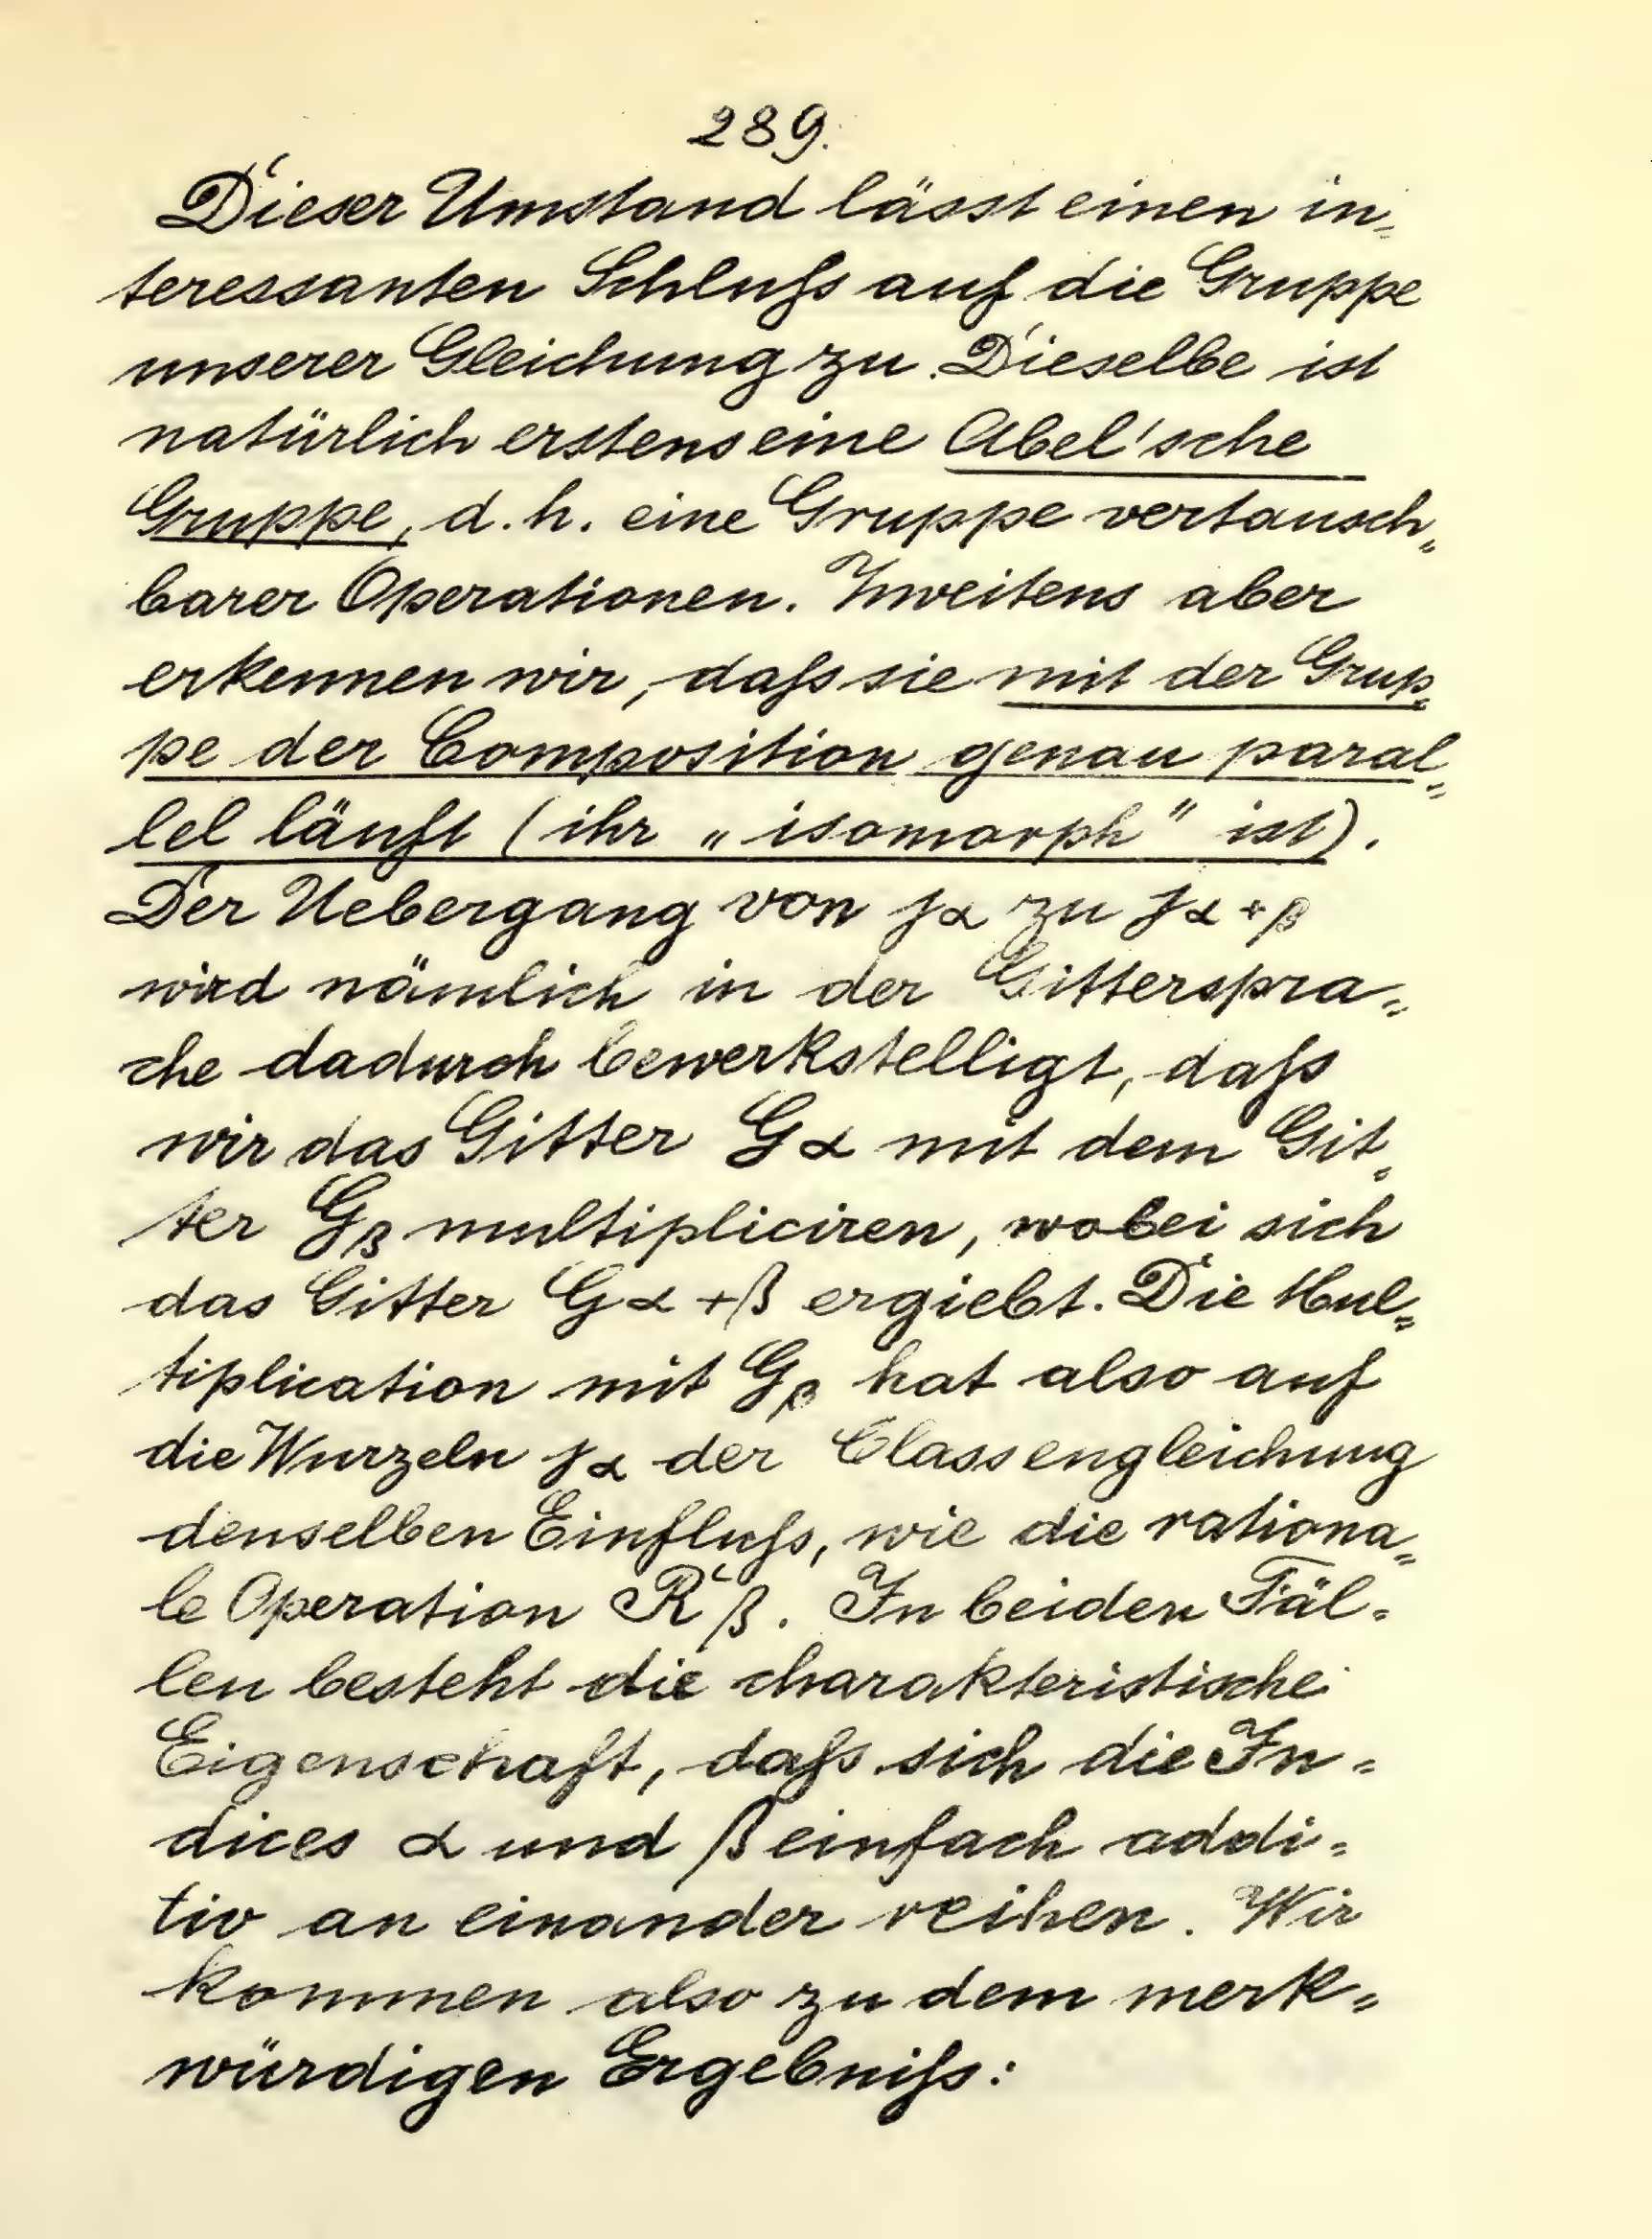 289.
Dieser Umstand lässt einen in„
teressanten Schluſs auf die Gruppe
unserer Gleichung zu. Dieselbe ist
natürlich erstens eine Abel'sche
Gruppe, d. h. eine Gruppe vertausch„
barer Operationen. Zweitens aber
erkennen wir, daſs sie mit der Grup„
pe der Composition genau paral„
lel läuft (ihr „isomorph" ist).
Der Uebergang von jα zu jα+β
wird nämlich in der Gitterspra„
che dadurch bewerkstelligt, daſs
wir das Gitter Gα mit dem Git„
ter Gβ multipliciren, wobei sich
das Gitter Gα+β ergiebt. Die Mul„
tiplication mit Gβ hat also auf
die Wurzeln jα der Classengleichung
denselben Einfluſs, wie die rationa„
le Operation Rβ. In beiden Fäl„
len besteht die charakteristische
Eigenschaft, daſs sich die In„
dices α und β einfach addi„
tiv an einander reihen. Wir
kommen also zu dem merk„
würdigen Ergebniſs: